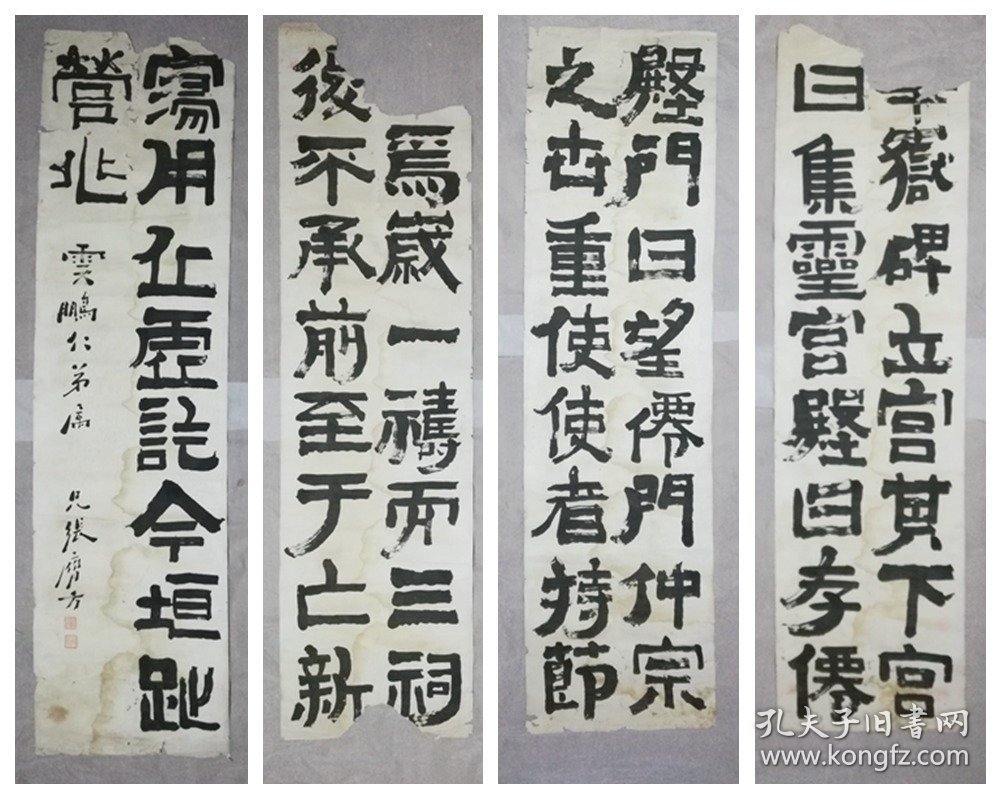 嶽碑立宮其下宮
曰集靈宮壂曰存僊
壂門曰望僊門仲宗
之世重使使者持節
焉歲一禱而三祠
後不承前至于亡新
用丘虛訖今垣趾
營兆
雲鵬仁弟屬
兄張
孔夫子旧书网
www.kongfz.com